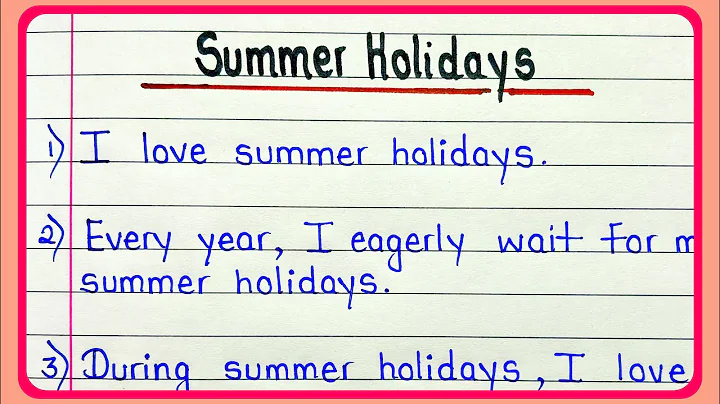 Summer Holidays
1) I love summer holidays.
2) Every year, I eagerly wait for m
summer holidays.
3) During summer holidays, I love